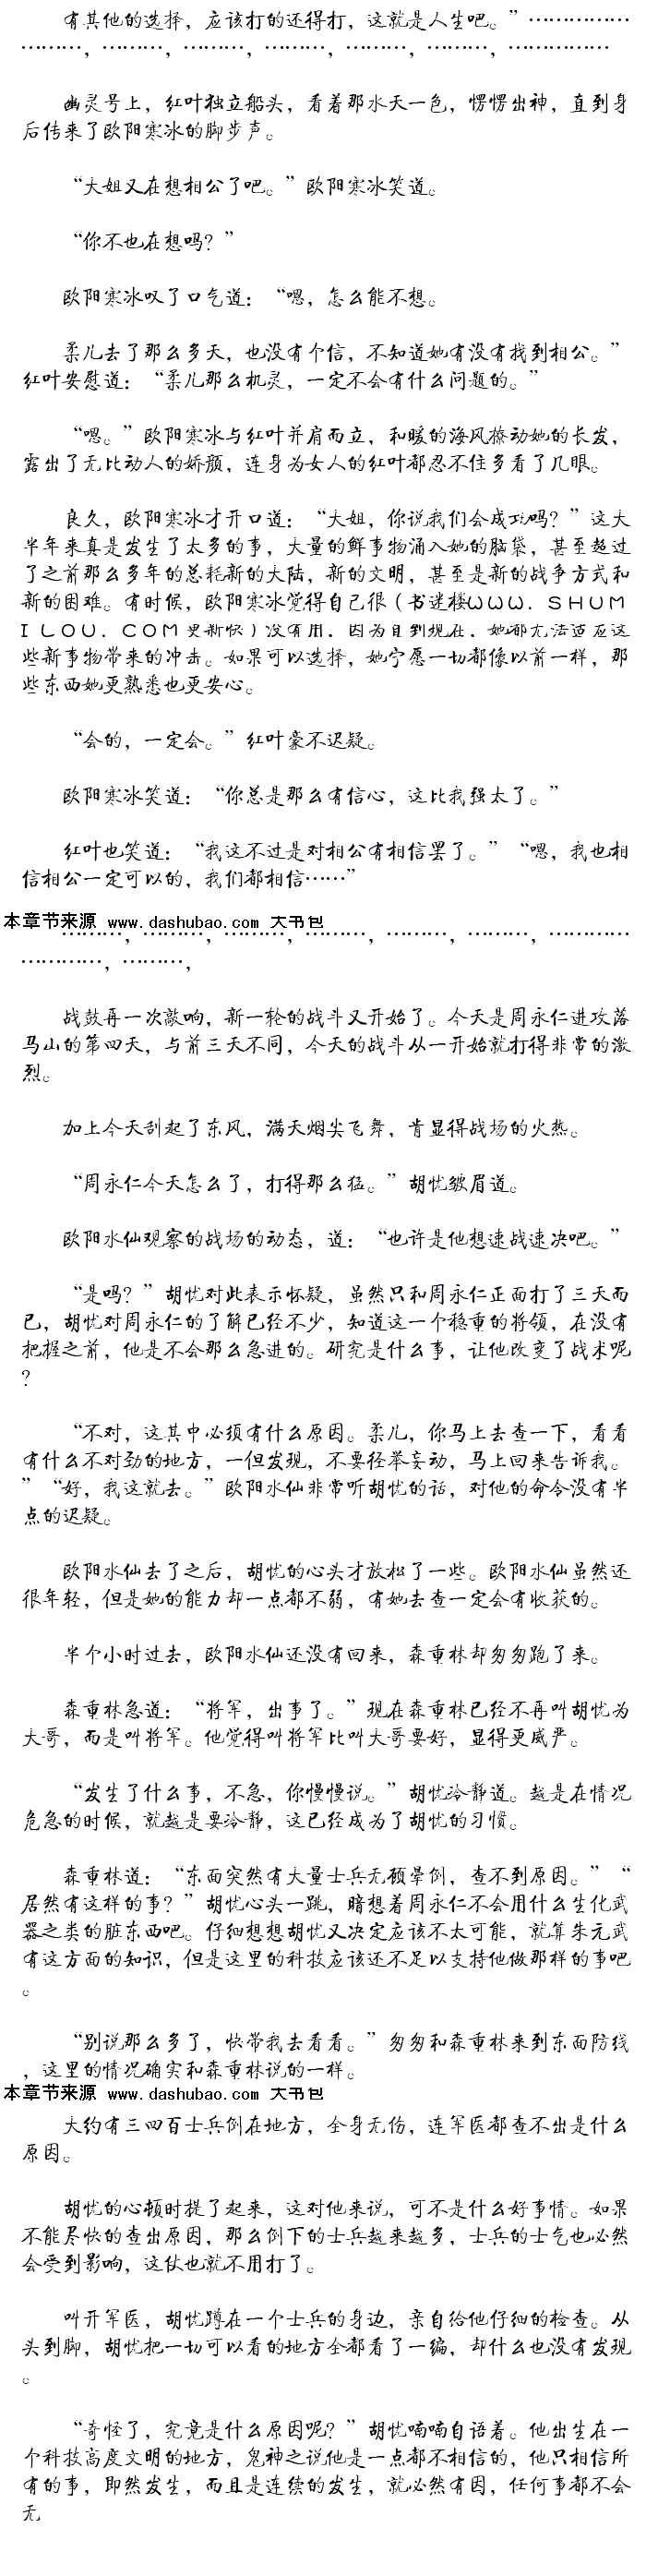 有其他的选择，应该打的还得打，这就是人生吧。”………………
…………，………，………，………，………，………，………………
幽灵号上，红叶独立船头，看着那水天一色，愣愣出神，直到身
后传来了欧阳寒冰的脚步声。
“大姐又在想相公了吧。”欧阳寒冰笑道。
“你不也在想吗？”
欧阳寒冰叹了口气道：“嗯，怎么能不想。
柔儿去了那么多天，也没有个信，不知道她有没有找到相公。”
红叶安慰道：“柔儿那么机灵，一定不会有什么问题的。”
“嗯。”欧阳寒冰与红叶并肩而立，和暖的海风撩动她的长发，
露出了无比动人的娇颜，连身为女人的红叶都忍不住多看了几眼。
良久，欧阳寒冰才开口道：“大姐，你说我们会成功吗？”这大
半年来真是发生了太多的事，大量的鲜事物涌入她的脑袋，甚至超过
了之前那么多年的总耗新的大陆，新的文明，甚至是新的战争方式和
新的困难。有时候，欧阳寒冰觉得自己很（书迷楼WWW．SHUM
ILOU．COM更新快）没有用，因为自到现在，她都无法适应这
些新事物带来的冲击。如果可以选择，她宁愿一切都像以前一样，那
些东西她更熟悉也更安心。
“会的，一定会。”红叶豪不迟疑。
欧阳寒冰笑道：“你总是那么有信心，这比我强太了。”
红叶也笑道：“我这不过是对相公有相信罢了。”“嗯，我也相
信相公一定可以的，我们都相信……”
本章节来源 www.dashubao.com 大书包
………，………，………，………，………，………，…………
…………，………，
战鼓再一次敲响，新一轮的战斗又开始了。今天是周永仁进攻落
马山的第四天，与前三天不同，今天的战斗从一开始就打得非常的激
烈。
加上今天刮起了东风，满天烟尘飞舞，肯显得战场的火热。
“周永仁今天怎么了，打得那么猛。”胡忧皱眉道。
欧阳水仙观察的战场的动态，道：“也许是他想速战速决吧。”
“是吗？”胡忧对此表示怀疑，虽然只和周永仁正面打了三天而
已，胡忧对周永仁的了解已经不少，知道这一个稳重的将领，在没有
把握之前，他是不会那么急进的。研究是什么事，让他改变了战术呢
？
“不对，这其中必须有什么原因。柔儿，你马上去查一下，看看
有什么不对劲的地方，一但发现，不要径举妄动，马上回来告诉我。
”“好，我这就去。”欧阳水仙非常听胡忧的话，对他的命令没有半
点的迟疑。
欧阳水仙去了之后，胡忧的心头才放松了一些。欧阳水仙虽然还
很年轻，但是她的能力却一点都不弱，有她去查一定会有收获的。
半个小时过去，欧阳水仙还没有回来，森重林却匆匆跑了来。
森重林急道：“将军，出事了。”现在森重林已经不再叫胡忧为
大哥，而是叫将军。他觉得叫将军比叫大哥要好，显得更威严。
“发生了什么事，不急，你慢慢说。”胡忧冷静道。越是在情况
危急的时候，就越是要冷静，这已经成为了胡忧的习惯。
森重林道：“东面突然有大量士兵无顿晕倒，查不到原因。”“
居然有这样的事？”胡忧心头一跳，暗想着周永仁不会用什么生化武
器之类的脏东西吧。仔细想想胡忧又决定应该不太可能，就算朱元武
有这方面的知识，但是这里的科技应该还不足以支持他做那样的事吧
。
“别说那么多了，快带我去看看。”匆匆和森重林来到东面防线
，这里的情况确实和森重林说的一样。
本章节来源 www.dashubao.com 大书包
大约有三四百士兵倒在地方，全身无伤，连军医都查不出是什么
原因。
胡忧的心顿时提了起来，这对他来说，可不是什么好事情。如果
不能尽快的查出原因，那么倒下的士兵越来越多，士兵的士气也必然
会受到影响，这仗也就不用打了。
叫开军医，胡忧蹲在一个士兵的身边，亲自给他仔细的检查。从
头到脚，胡忧把一切可以看的地方全都看了一编，却什么也没有发现
。
“奇怪了，究竟是什么原因呢？”胡忧喃喃自语着。他出生在一
个科技高度文明的地方，鬼神之说他是一点都不相信的，他只相信所
有的事，即然发生，而且是连续的发生，就必然有因，任何事都不会
无